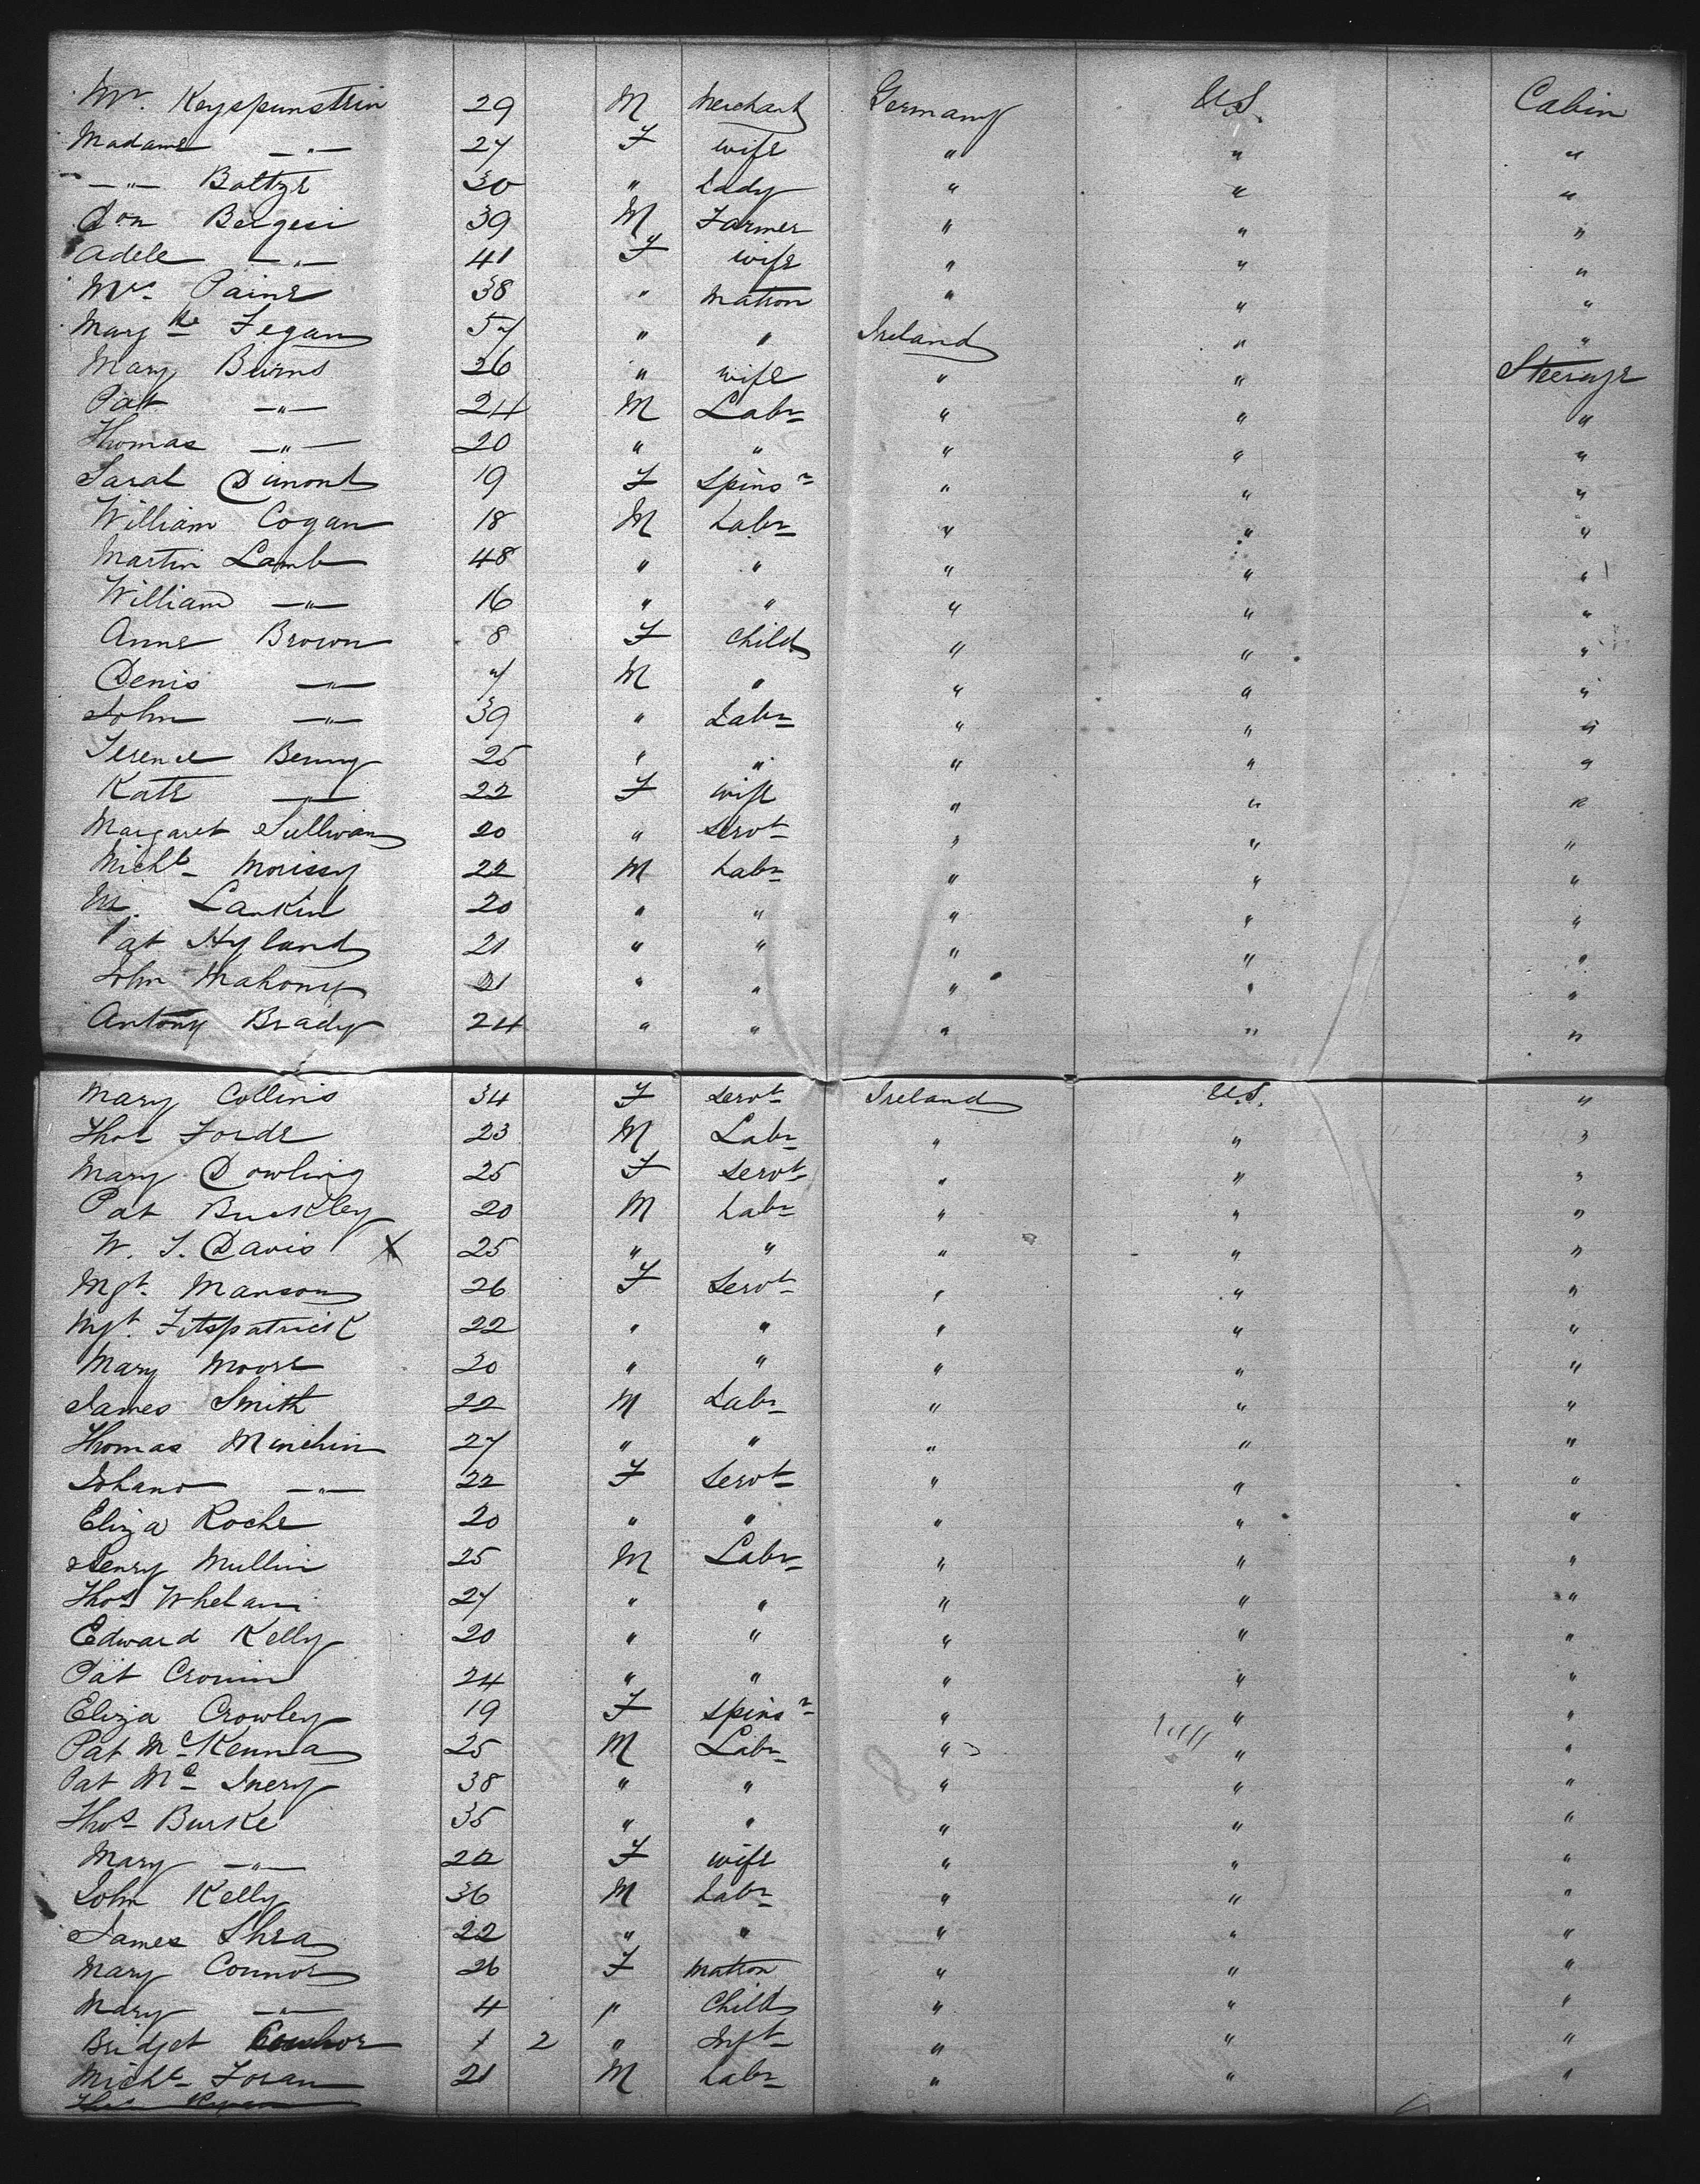 Mr. Keyspunstein 29 M Merchant Germany U.S. Cabin
Madame —"— 27 F wife " " "
—"— Baltze 30 " Lady " " "
Don Bergesi 39 M Farmer " " "
Adele —"— 41 F wife " " "
Mrs. Paine 38 " Matron " " "
Mary Fegan 57 " " Ireland " "
Mary Burns 26 " wife " " Steerage
Pat —"— 24 M Labr " " "
Thomas —"— 20 " " " " "
Sarah Dimond 19 F Spinsr " " "
William Cogan 18 M Labr " " "
Martin Lamb 48 " " " " "
William —"— 16 " " " " "
Anne Brown 8 F child " " "
Denis —"— 7 M " " " "
John —"— 39 " Labr " " "
Terence Benny 25 " " " " "
Kate —"— 22 F wife " " "
Margaret Sullivan 20 " servt " " "
Michl Morissy 22 M Labr " " "
M. Larkin 20 " " " " "
Pat Hyland 21 " " " " "
John Mahony 21 " " " " "
Antony Brady 24 " " " " "
Mary Collins 34 F servt Ireland U.S. "
Thos Forde 23 M Labr " " "
Mary Dowling 25 F servt " " "
Pat Buckley 20 M Labr " " "
W. J. Davis X 25 " " " " "
Mgt. Manson 26 F Servt " " "
Mgt. Fitspatrick 22 " " " " "
Mary Moore 20 " " " " "
James Smith 22 M Labr " " "
Thomas Minchin 27 " " " " "
Johana —"— 22 F Servt " " "
Eliza Roche 20 " " " " "
Henry Mullin 25 M Labr " " "
Thos Whelan 27 " " " " "
Edward Kelly 20 " " " " "
Pat Cronin 24 " " " " "
Eliza Crowley 19 F spinsr " " "
Pat McKenna 25 M Labr " " "
Pat Mc Inery 38 " " " " "
Thos Burke 35 " " " " "
Mary —"— 22 F wife " " "
John Kelly 36 M Labr " " "
James Shea 22 " " " " "
Mary Connor 26 F matron " " "
Mary —"— 4 " Child " " "
Bridget Connor 1 2 " Inft " " "
Michl Foran 21 M Labr " " "